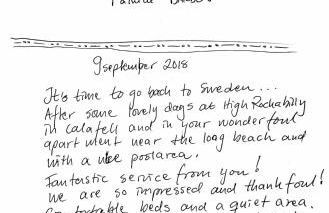 9 september 2018
It's time to go back to Sweden...
After some lovely days at High Rockabilly
in Calafell and in your wonderfoul
apartment near the long beach and
with a nice poolarea.
Fantastic service from you!
we are so impressed and thankfoul!
beds and a quiet area.